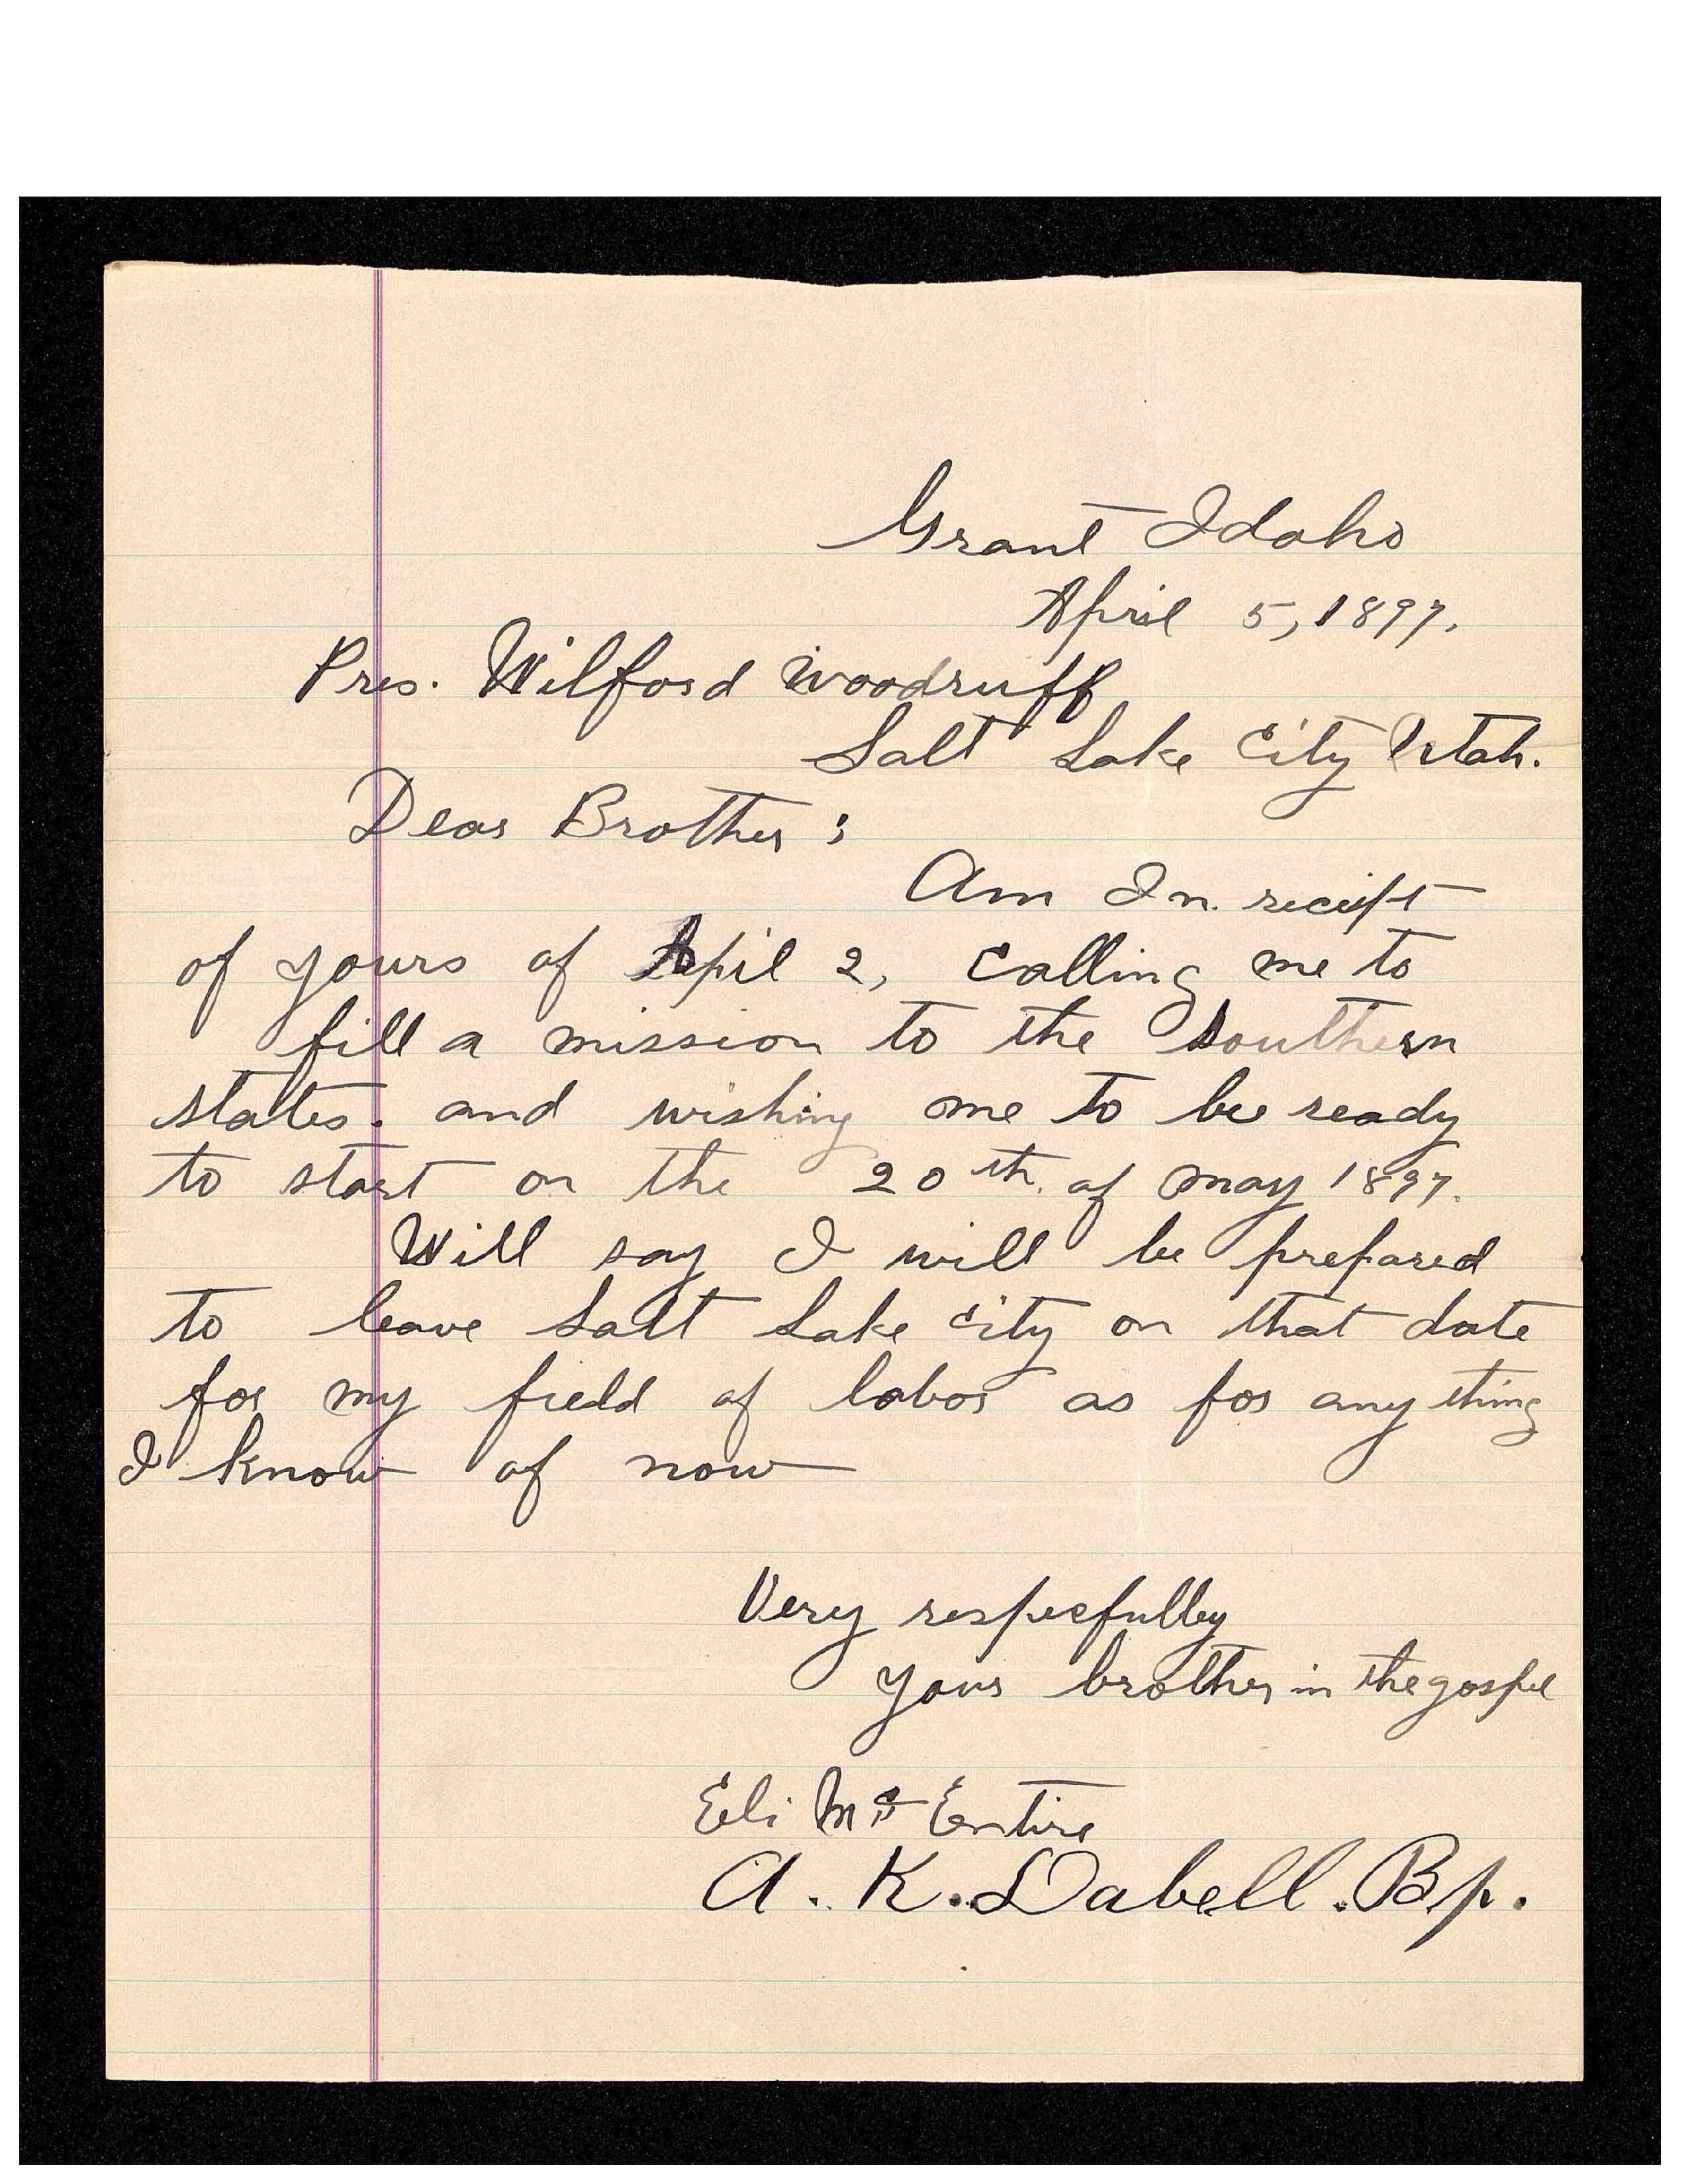 Grant Idaho
April 5, 1897.
Pres. Wilford Woodruff
Salt Lake City Utah.
Dear Brother:
Am In. reciept
of yours of Apil 2, Calling me to
fill a mission to the Southern
states. and wishing me to be ready
to start on the 20th. of May 1897.
Will say I will be prepared
to leave Salt Lake City on that date
for my field of labor as for any thing
I know of now
Very respecfulley
your brother in the gospel
Eli McEntire
A. K. Dabell. Bp.